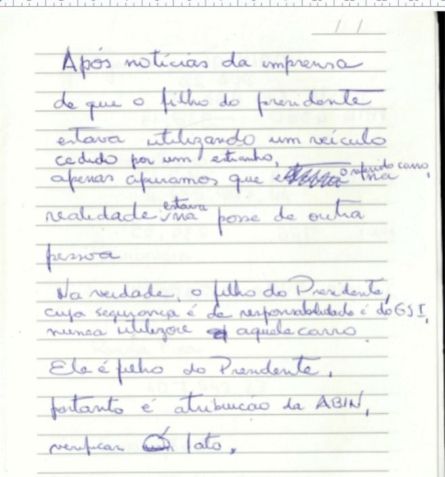 Após notícias da imprensa
de que o filho do presidente
estava utilizando um veículo
cedido por um estranho,
apenas apuramos que o referido carro,
na
realidade estava na posse de outra
pessoa
Na verdade, o filho do Presidente,
cuja segurança é de responsabilidade é do GSI,
nunca utilizou aquele carro.
Ele é filho do Presidente,
portanto é atribuição da ABIN,
verificar fato.